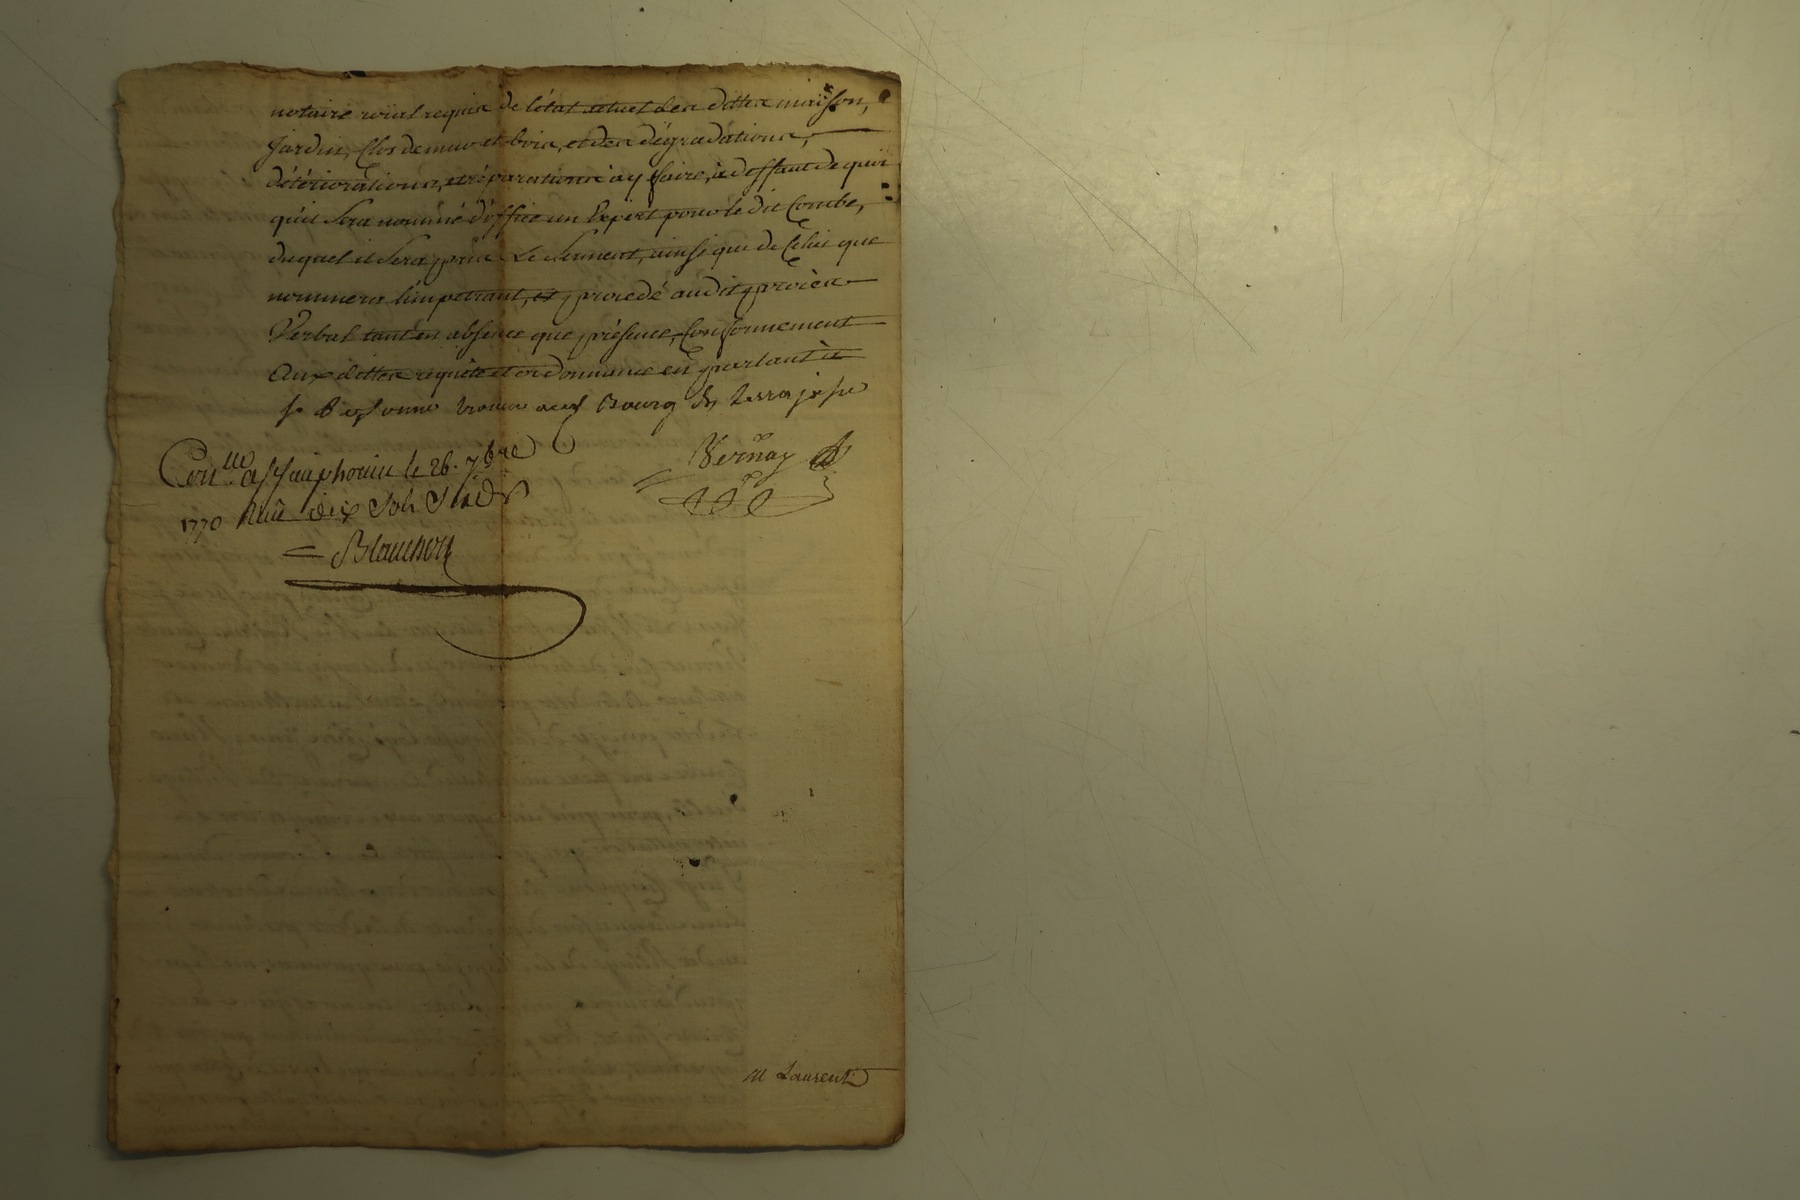 notaire roial requis de l'état actuel des dittes maison,
jardin, Clos de mur et bois, et des dégradations,
détériorations, et réparations à y faire, à deffaut de quoi
qu'il Sera nommé d'office un Expert pour le dit Combe,
duquel il Sera pris Le Serment, ainsi que de Celui que
nommera l'impetrant, et procédé au dit procès
Verbal tant en absence que présence, Conformement
Aux dittes requête et ordonnance en parlant à
sa personne trouvé au Bourg de
Vernay
Con.lle a St Saiphorin le 26. 7bre
1770 Reçu dix Sols Six d.
Blanchon
M Laurent